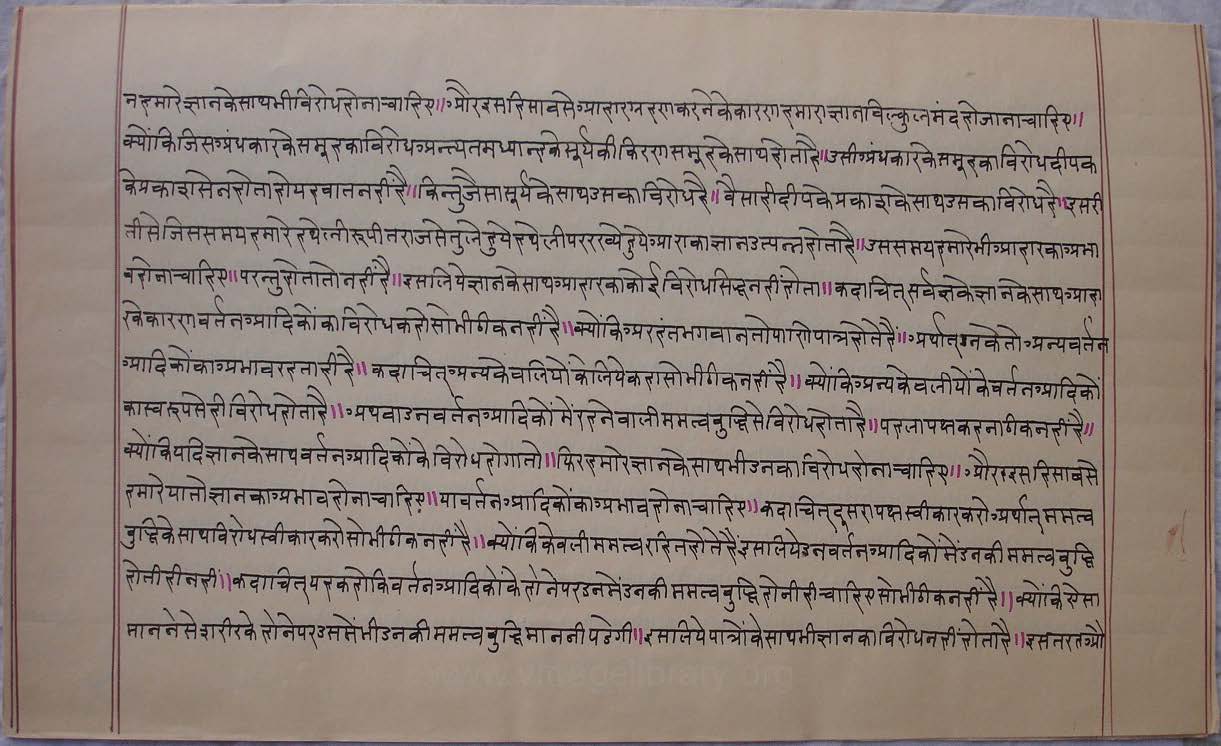 नहमारेज्ञानकेसाथभीविरोधहोनाचाहिए॥औरइसहिसाबसेआहारग्रहणकरनेकेकारणहमाराज्ञानबिल्कुलमंदहोजानाचाहिए॥
क्योंकिजिसअंधकारकेसमूहकाविरोधअत्यंतमध्यान्हकेसूर्यकीकिरणसमूहकेसाथहोताहै॥उसीअंधकारकेसमूहकाविरोधदीपक
केप्रकाशसेनहोताहोयहबातनहींहै॥किन्तुजैसासूर्यकेसाथउसकाविरोधहै॥वैसाहीदीपकेप्रकाशकेसाथउसकाविरोधहै॥इसरी
तीसेजिससमयहमारेहथेलीरूपीतराजसेतुलेहुयेहथेलीपररख्येहुयेआहाराकाज्ञानउत्पन्नहोताहै॥उससमयहमारेभीआहारकाअभा
वहोनाचाहिए॥परन्तुहोतातोनहींहै॥इसलियेज्ञानकेसाथआहारकाकोईविरोधसिद्धनहींहोता॥कदाचित्सर्वज्ञकेज्ञानकेसाथआहा
रकेकारणवर्तनआदिकोंकाविरोधकहोसोभीठीकनहींहै॥क्योंकिअरहंतभगवानतोपाणिपात्रहोतेहैं॥अर्थात्उनकेतोअन्यवर्तन
आदिकोंकाअभावरहताहीहै॥कदाचित्अन्यकेवलियोंकेलियेकहासोभीठीकनहींहै॥क्योंकिअन्यकेवलीयोंकेवर्तनआदिकों
कास्वरूपसेहीविरोधहोताहै॥अथवाउनवर्तनआदिकोंमेंरहनेवालीममत्वबुद्धिसेविरोधहोताहै॥पहलापक्षकहनाठीकनहींहै॥
क्योंकियदिज्ञानकेसाथवर्तनआदिकोंकेविरोधहोगातो॥फिरहमारेज्ञानकेसाथभीउनकाविरोधहोनाचाहिए॥औरइसहिसाबसे
हमारेयातोज्ञानकाअभावहोनाचाहिए॥यावर्तनआदिकोंकाअभावहोनाचाहिए॥कदाचित्दूसरापक्षस्वीकारकरोअर्थात्ममत्व
बुद्धिकेसाथविरोधस्वीकारकरोसोभीठीकनहींहै॥क्योंकिकेवलीममत्वरहितहोतेहैंइसलियेउनवर्तनआदिकोंमेंउनकीममत्वबुद्धि
होतीहीनहीं॥कदाचित्यहकहोकिवर्तनआदिकोंकेहोनेपरउनमेंउनकीममत्वबुद्धिहोनीहीचाहिएसोभीठीकनहींहै॥क्योंकिऐसा
माननेसेशरीरकेहोनेपरउसमेंभीउनकीममत्वबुद्धिमाननीपडेगी॥इसलियेपात्रोंकेसाथभीज्ञानकाविरोधनहींहोताहै॥इसतरहऔ